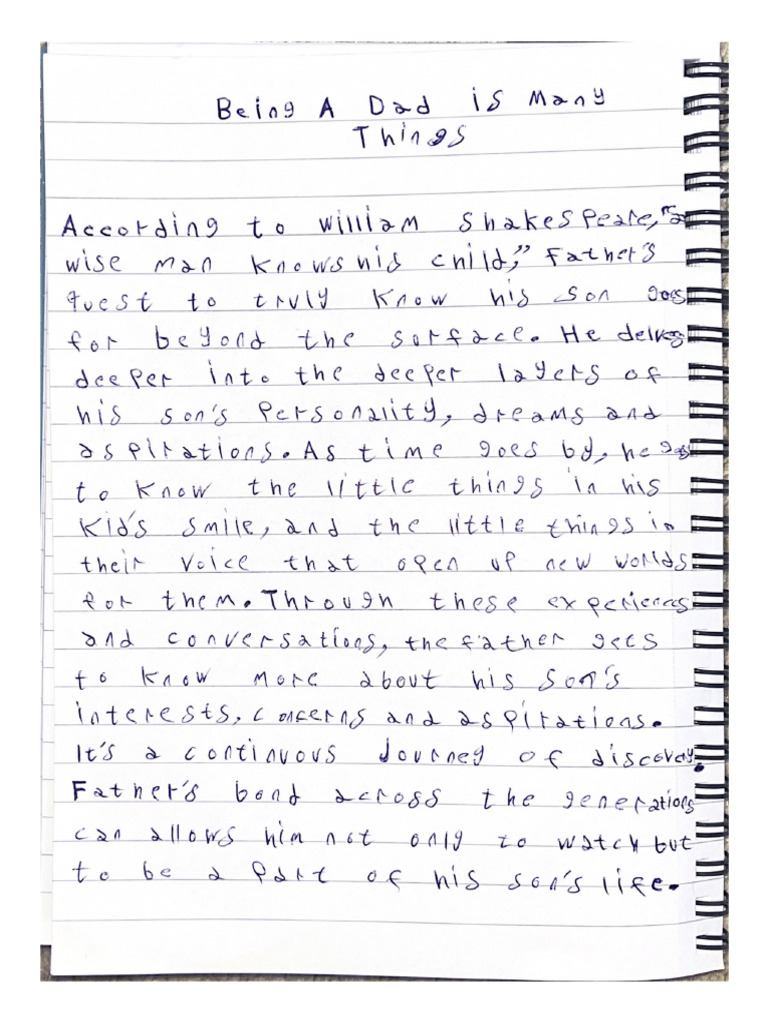 Being A Dad is Many
Things
According to William Shakespeare, "a
wise man knows his child," Father's
quest to truly know his son goes
for beyond the surface. He delves
deeper into the deeper layers of
his son's personality, dreams and
aspirations. As time goes by, he gets
to know the little things in his
kid's smile, and the little things in
their voice that open up new worlds
for them. Through these experiences
and conversations, the father gets
to know more about his son's
interests, concerns and aspirations.
It's a continuous journey of discovery.
Father's bond across the generations
can allows him not only to watch but
to be a part of his son's life.